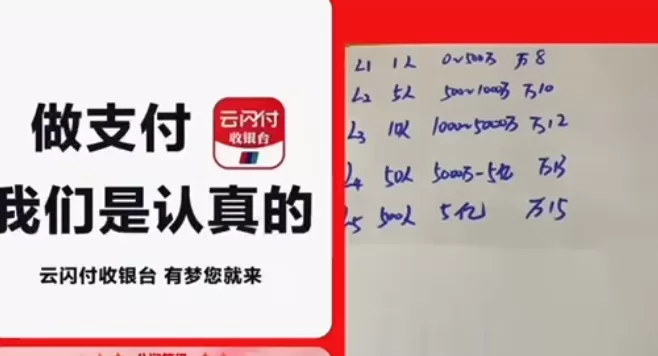 做支付
云闪付
收银台
我们是认真的
云闪付收银台 有梦您就来
L1 1人 0~500万 万8
L2 5人 500~1000万 万10
L3 10人 1000~5000万 万12
L4 50人 5000万-5亿 万13
L5 500人 5亿 万15